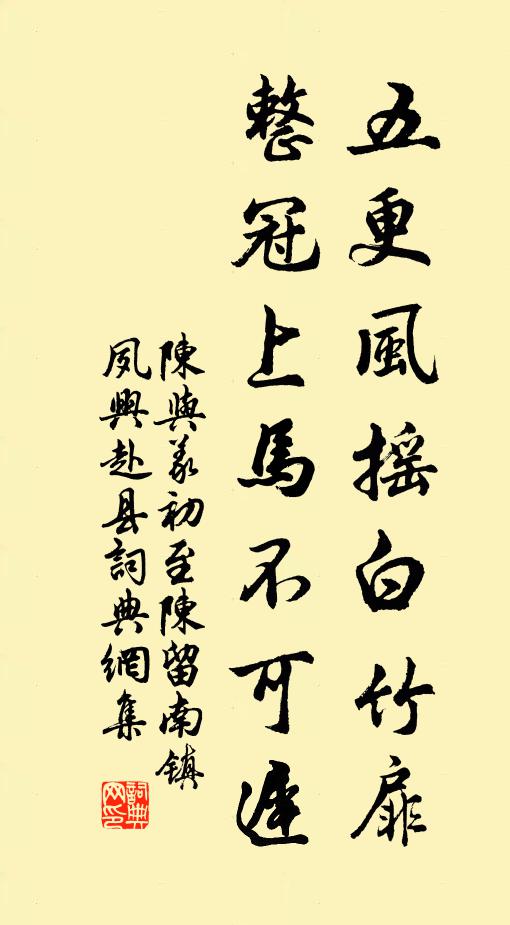 五更風摇白竹扉
整冠上馬不可遲
陳與義初至陳留南镇
夙興赴县詞典網集
詞典网印